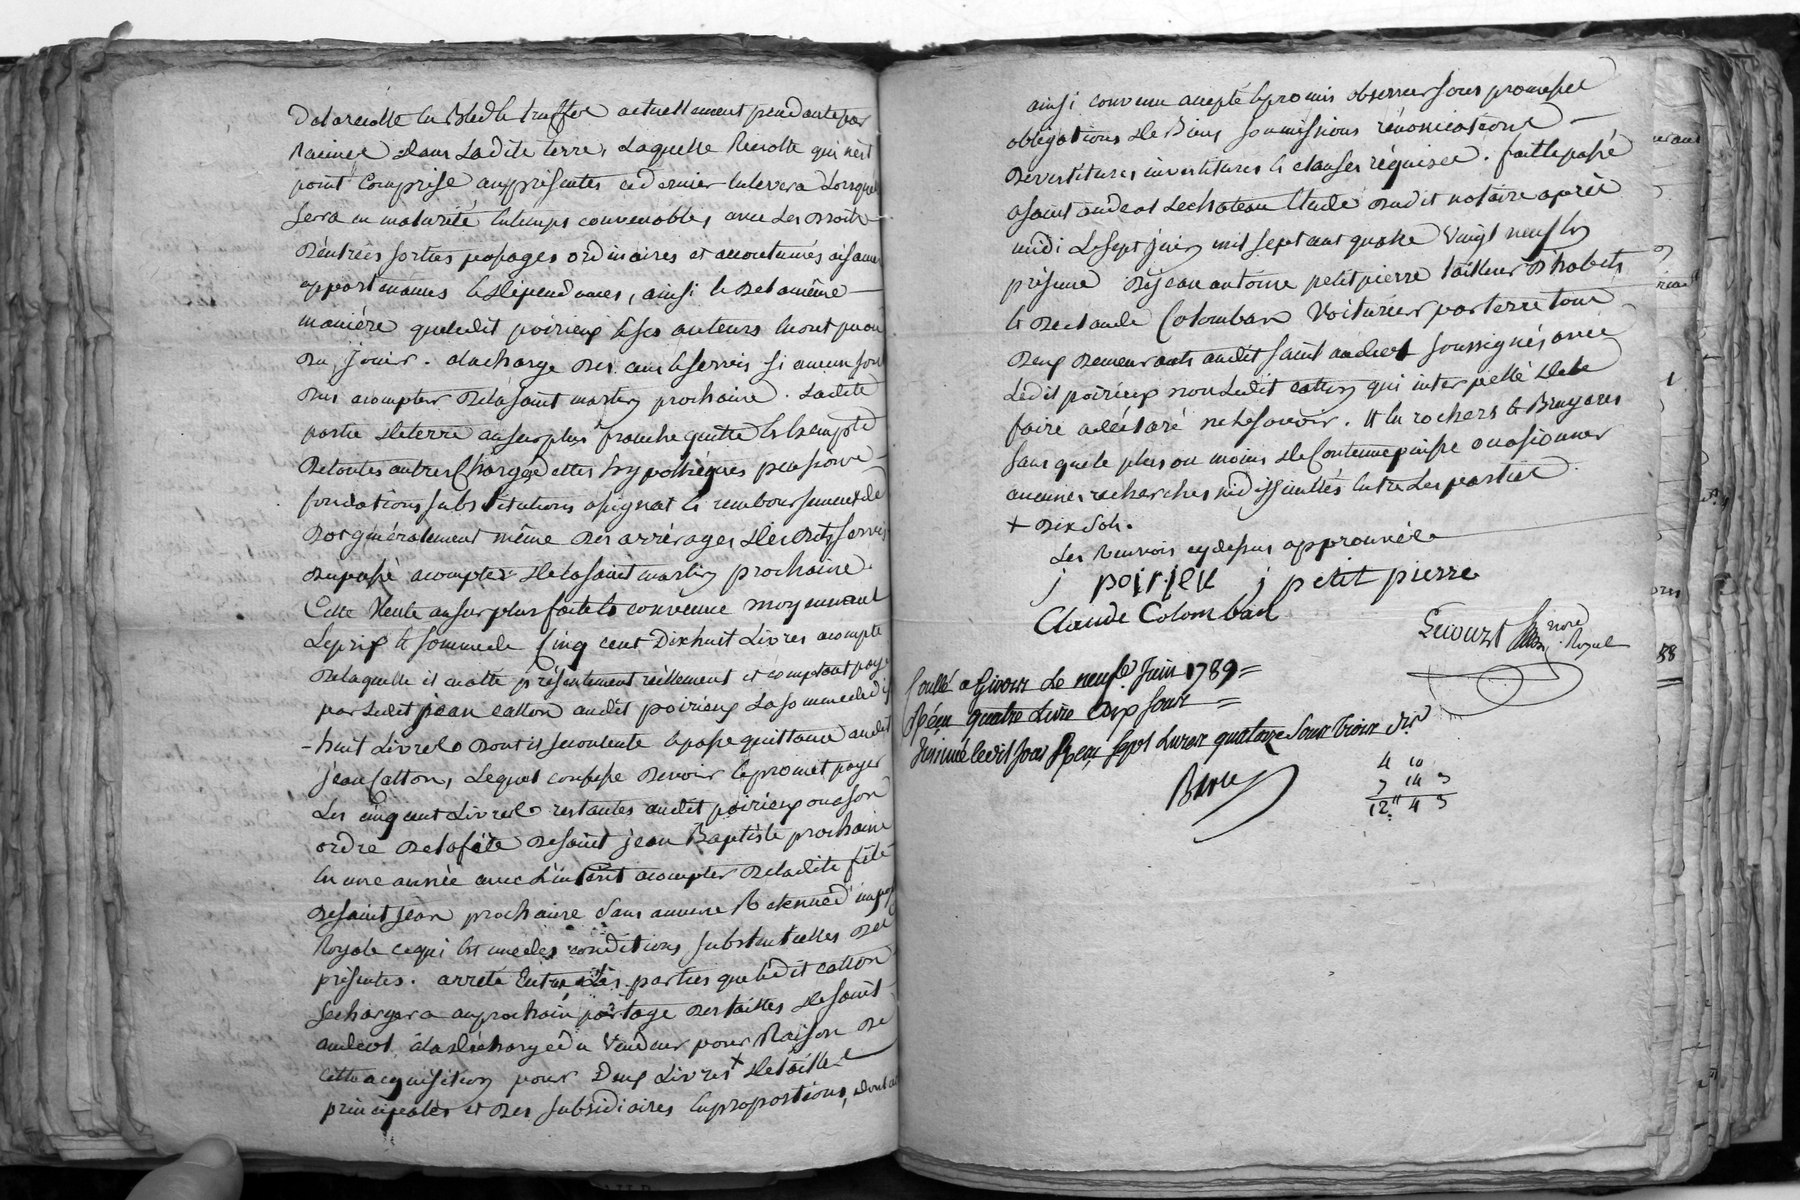 De la recolte en Bled & truffes actuellement pendante par
Racines dans Ladite terre, Laquelle Recolte qui n'est
point Comprise aux présentes ce dernier Enlevera Lorsquel
sera en maturité En temps convenables, avec Les Droits
D'entrées sorties passages ordinaires et accoutumés aisances
appartenances & dépendances, ainsi & De la même
manière que ledit poirieux & ses auteurs En ont pu ou
Du jouir. a la charge Des cens & servis si aucun sont
Dus a compter De la saint martin prochaine. Ladite
partie De terre au surplus franche quitte & Exempte
De toutes autres Charges dettes hypothèques pensions
fondations substitutions assignat & remboursement de
Dot généralement même Des arrérages Desdits servis
Du passé a compter De la saint martin prochaine.
Cette Vente au surplus faite & convenue moyennant
Le prix & somme de Cinq cent Dixhuit Livres a compte
De laquelle il en a été présentement réellement et comptant payé
par Ledit jean catton audit poirieux La somme de dix
-huit Livres Dont il se contente & passe quittance audit
jean Catton, Lequel confesse Devoir & promet payer
Les cinq cent Livres restantes audit poirieux ou a son
ordre De la fête De saint jean Baptiste prochaine
En une année avec L'intérêt a compter De ladite fête
De saint jean prochaine sans aucune Retenue d'impos
Royale ce qui Est une des conditions substantielles Des
présentes. arrêté Entre Les parties que ledit catton
se chargera au prochain partage Des tailles De saint
andeol à la Décharge du Vendeur pour Raison De
cette acquisition pour Deux Livres + De taille
principales et Des subsidiaires En proportions, dont
ainsi convenu accepté & promis observer sous promesses
obligations De Biens soumissions rénonciations
Devestitures investitures & clauses réquises. fait & passé
a saint andeol Le chateau Etude Dudit notaire après
midi Le sept juin mil sept cent quatre vingt neuf En
présence De jean antoine petit pierre tailleur D'habits
& De claude Colomban Voiturier par terre tous
Deux Demeurants audit saint andeol soussignés avec
Ledit poirieux non Ledit catton qui interpellé De le
faire a déclaré ne le savoir. # En rochers & Bruyeres
sans que le plus ou moins De Contenue puisse occasionner
aucunes recherches ni difficultés Entre Les parties
+ Dix sols.
Les Renvois cy dessus approuvés
j poirieu j petit pierre
Claude Colomban
nore
Royal
Contlé a Givors Le neuf Juin 1789 =
Reçu quatre Livre dix sous =
Insinué ledit Jour Reçu sept Livres quatorze sous trois drs
4 10
7 14 3
12" 4 3